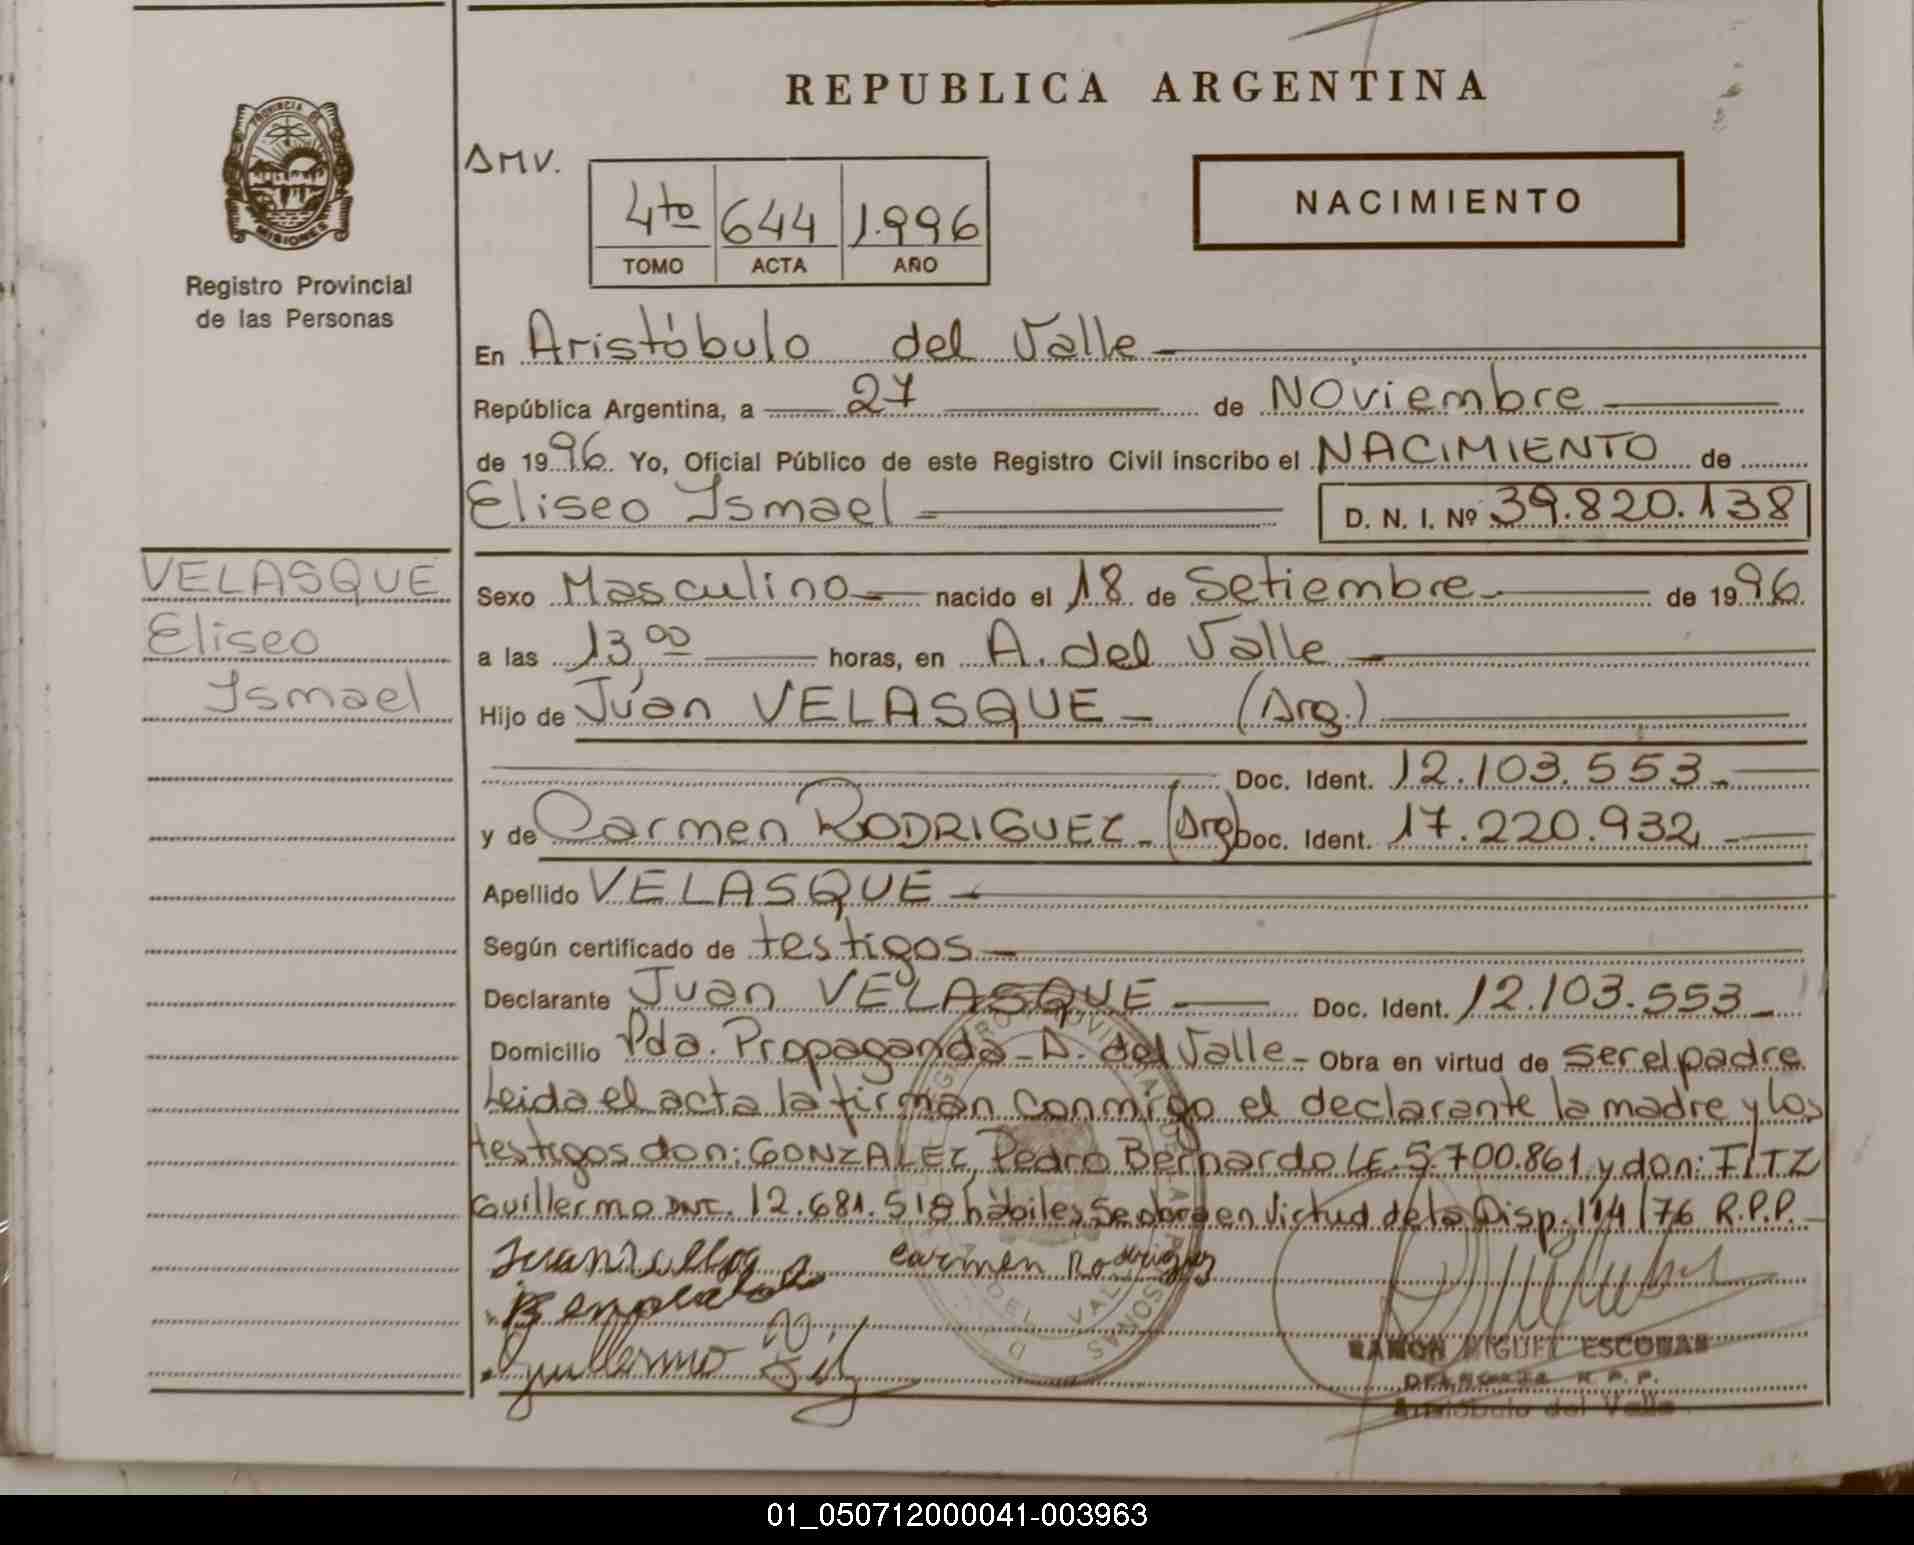 REPUBLICA ARGENTINA
PROVINCIA DE
MISIONES
Registro Provincial
de las Personas
AMV.
4to 644 1.996
TOMO ACTA AÑO
NACIMIENTO
En Aristóbulo del Valle
República Argentina, a 27 de Noviembre
de 1996 Yo, Oficial Público de este Registro Civil inscribo el NACIMIENTO de
Eliseo Ismael D. N. I. Nº 39.820.138
VELASQUE
Eliseo
Ismael
Sexo Masculino nacido el 18 de Setiembre de 1996
a las 13,00 horas, en A. del Valle
Hijo de Juan VELASQUE (Arg.)
Doc. Ident. 12.103.553
y de Carmen RODRIGUEZ (Arg) Doc. Ident. 17.220.932
Apellido VELASQUE
Según certificado de testigos
Declarante Juan VELASQUE Doc. Ident. 12.103.553
Domicilio Pda. Propaganda - A. del Valle - Obra en virtud de ser el padre
Leida el acta la firman conmigo el declarante la madre y los
testigos don: GONZALEZ, Pedro Bernardo L.E. 5.700.861 y don: TITZ
Guillermo DNI. 12.681.518 hábiles Se obra en virtud de la Disp. 114/76 R.P.P.
Carmen Rodriguez
Guillermo
RAMON MIGUEL ESCOBAR
R.P.P.
Aristóbulo del Valle
01_050712000041-003963